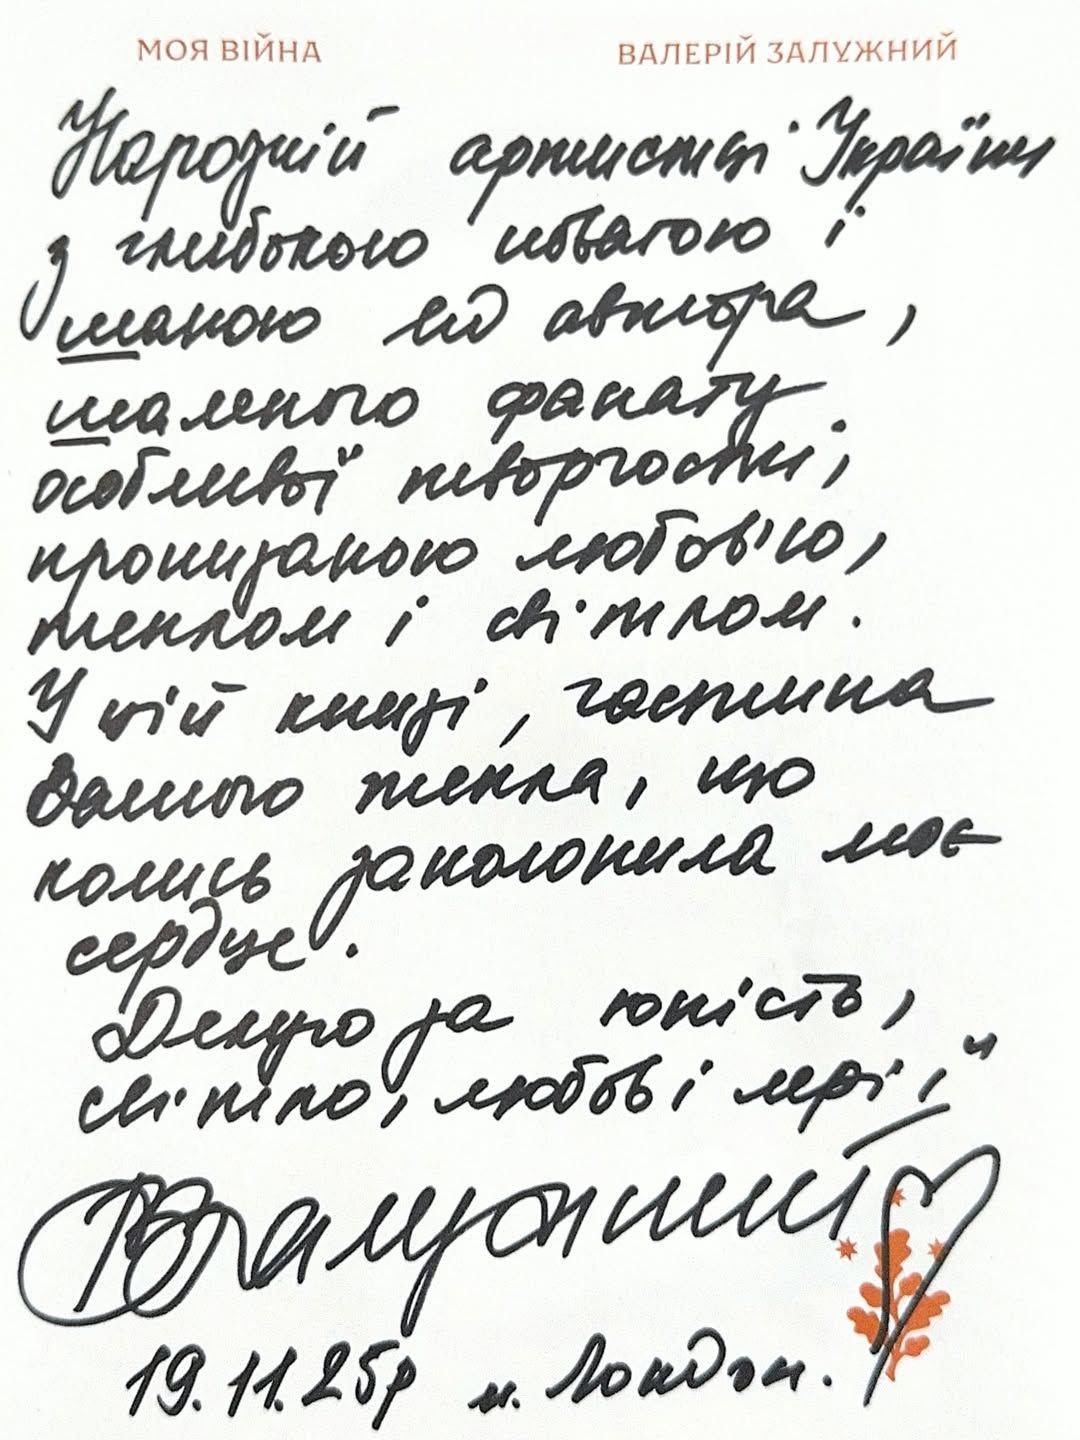 МОЯ ВІЙНА ВАЛЕРІЙ ЗАЛУЖНИЙ
Народній артистці України
з глибокою повагою і
шаною від автора,
шаленого фанату
особливої творчості,
пронизаною любов'ю,
теплом і світлом.
У цій книзі, частина
Вашого тепла, що
колись заполонила моє
серце.
Дякую за юність,
світло, любов і мрії"
ВЗалужний
19.11.25р м. Лондон.